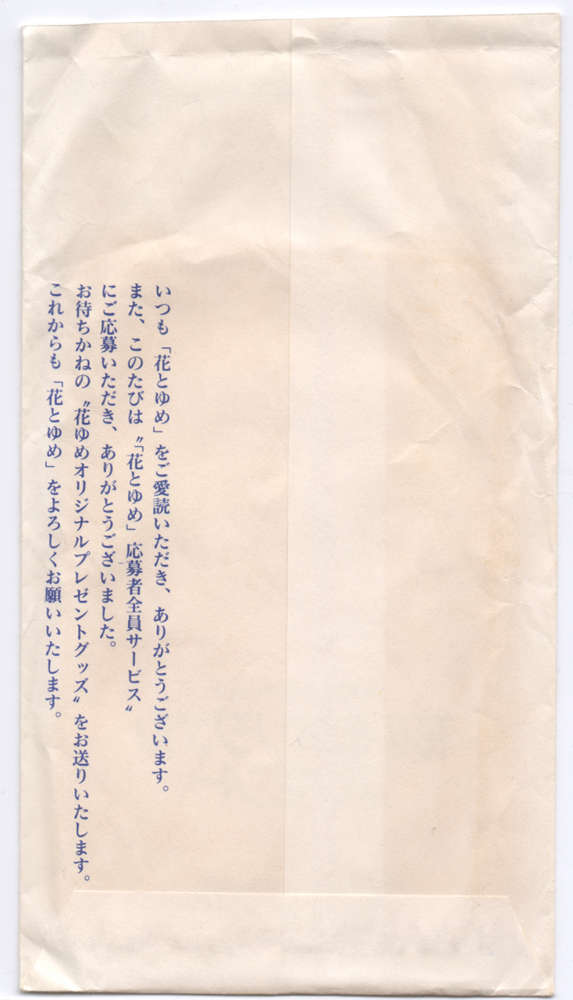 いつも「花とゆめ」をご愛読いただき、ありがとうございます。
また、このたびは〝「花とゆめ」応募者全員サービス〟
にご応募いただき、ありがとうございました。
お待ちかねの〝花ゆめオリジナルプレゼントグッズ〟をお送りいたします。
これからも「花とゆめ」をよろしくお願いいたします。